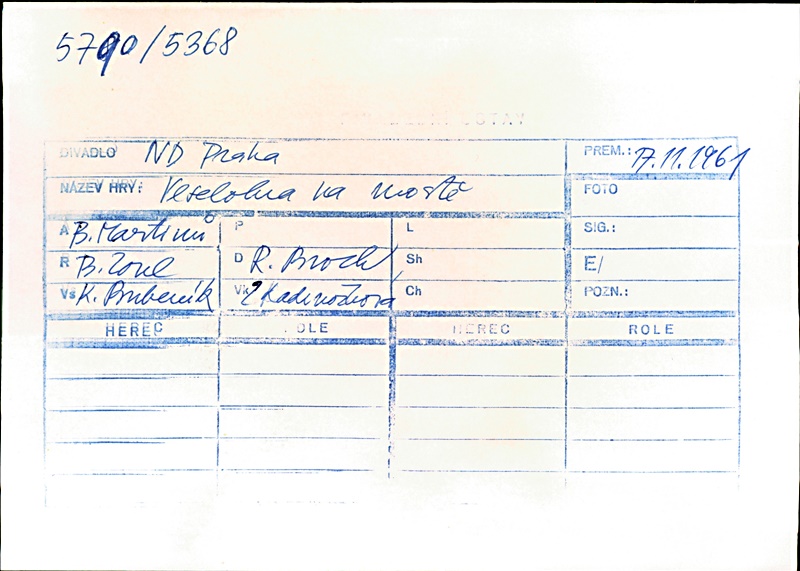 5790/5368
DIVADLO ND Praha PREM.: 17.11.1961
NÁZEV HRY: Veselohra na mostě FOTO
A B. Martinů P L SIG.:
R B. Zoul D R. Broch Sh E/
Vs K. Bubeník Vk Z Kadrnožková Ch POZN.:
HEREC ROLE HEREC ROLE